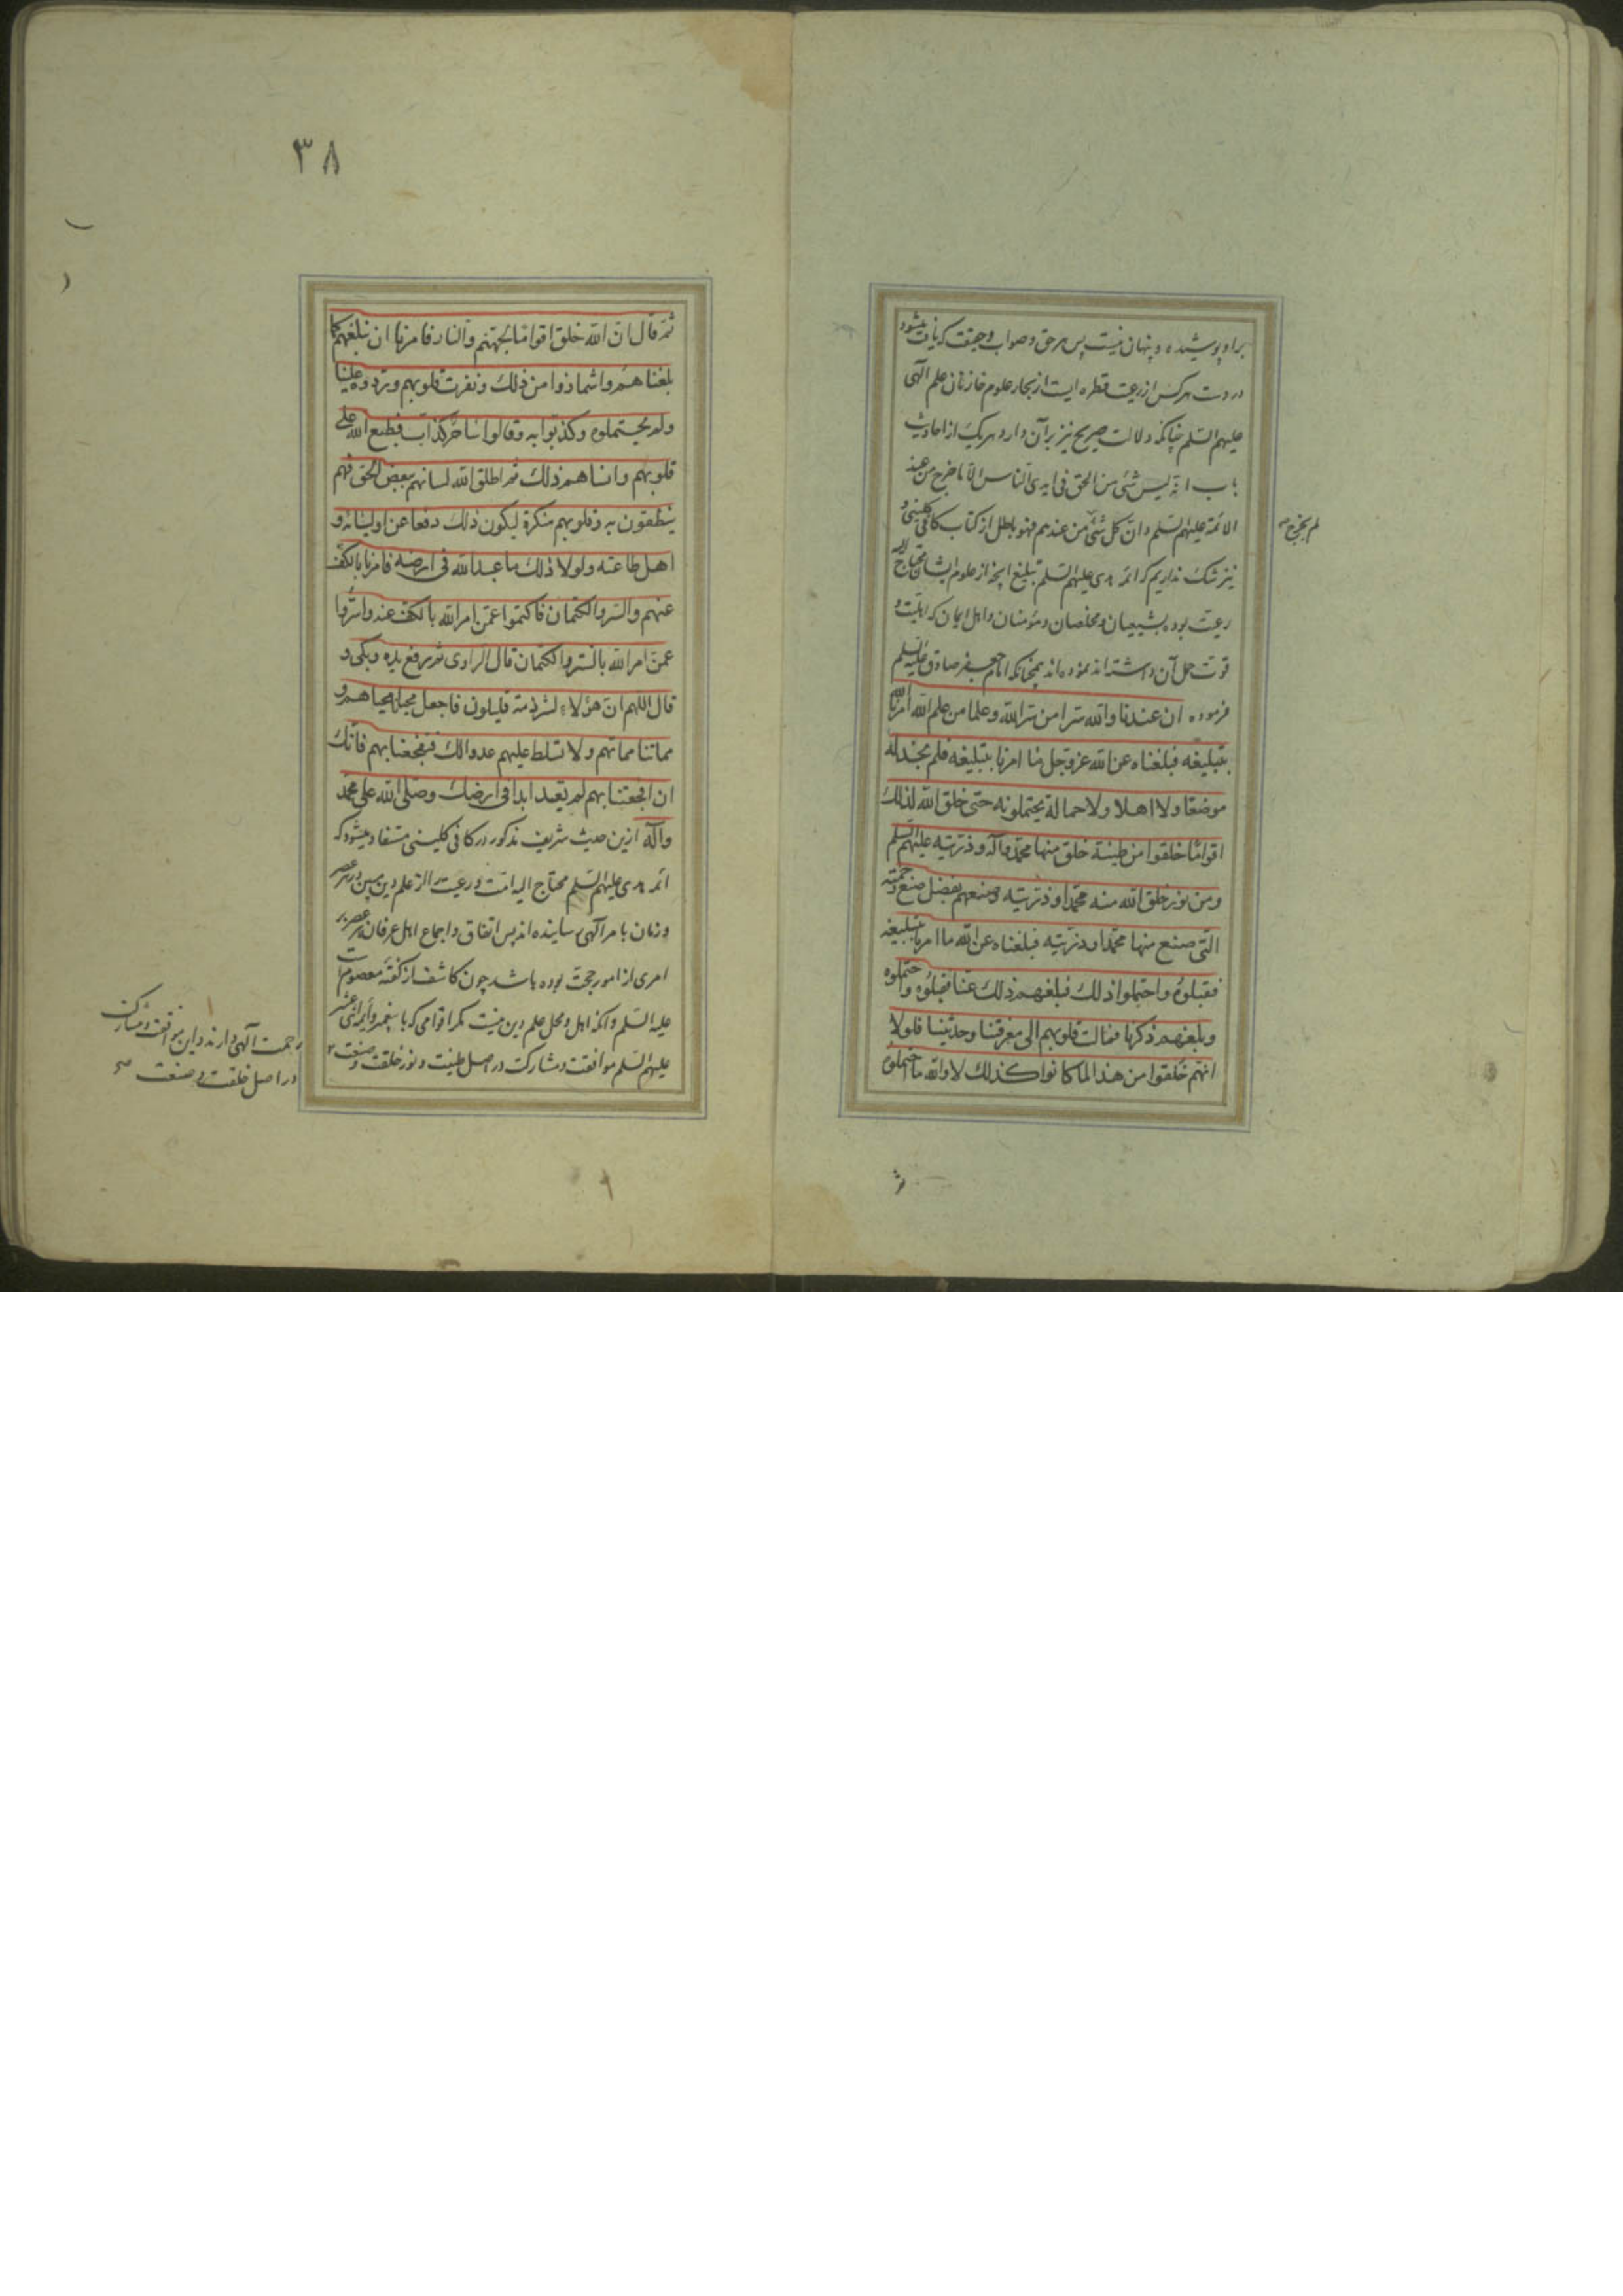 براو پوشیده و پنهان نیست پس هر حق و صواب و حقیقت که یافت میشود
در دست هرکس از رعیت قطره ایست از بحار علوم خازنان علم الٓهی
علیهم السّلم چنانکه دلالت صریح نیز برآن دارد هریک از احادیث
باب انّه لیس شئ من الحق فی ایدی النّاس الّا ما خرج من عند
الائمّة علیهم السّلم و انّ کل شئ من عندهم فهو باطل از کتاب کافی کلینی و
لم یخرج صح
نیز شک نداریم که ائمه هدی علیهم السّلم تبلیغ آنچه از علوم ایشان محتاج الیه
رعیت بوده بشیعیان و مخلصان و مؤمنان و اهل ایمان که اهلیت و
قوت حمل آن داشته اند نموده اند همچنانکه امام جعفر صادق علیه السّلم
فرموده ان عندنا والله سرا من سرالله وعلما من علم الله امرنا
بتبلیغه فبلغناه عن الله عزوجل ما امرنا بتبلیغه فلم نجد له
موضعًا ولا اهلا ولا حمالة یحتملونه حتی خلق الله لذلك
اقوامًا خلقوا من طینة خلق منها محمّد وآله و ذرّیته علیهم السّلم
ومن نور خلق الله منه محمّدا و ذرّیّته وصنعهم بفضل صنع رحمته
التّی صنع منها محمّدا و ذرّیّته فبلغناه عن الله ما امرنا بتبلیغه
فقبلوهُ واحتملوا ذلك فبلغهم ذلك عنّا فقبلوُه واحتملوه
وبلغهم ذکرنا فمالت قلوبهم الی معرفتنا وحدیثنا فلولا
انهم خلقوا من هذا لما کانوا کذلك لا والله ما احتملوه
ثمّ
٣٨
ثمّ قال انّ الله خلق اقوامًا لجهنّم والنار فامرنا ان نبلغهم کما
بلغناهم واشمأزوا من ذلك ونفرت قلوبهم وردّوه علینا
ولم یحتملوه وکذبوا به وقالوا ساحر کذاب فطبع الله علی
قلوبهم وانساهم ذلك ثم اطلق الله لسانهم ببعض الحق فهم
ینطقون به وقلوبهم منکرة لیکون ذلك دفعا عن اولیائه و
اهل طاعته ولولا ذلك ما عبد الله فی ارضه فامرنا بالکفّ
عنهم والستر والکتمان فاکتموا عمّن امر الله بالکفّ عنه واستروا
عمّن امر الله بالستر والکتمان قال الرّاوی ثم رفع یده وبکی و
قال اللّهم انّ هؤلاء لشرذمة قلیلون فاجعل محیانا محیاهم و
مماتنا مماتهم ولا تسلط علیهم عدوا لك فتفجعنا بهم فانّك
ان افجعتنا بهم لم تعبد ابدا فی ارضك وصلّی الله علی محمّد
وآله ازین حدیث شریف مذکور در کافی کلینی مستفاد میشود که
ائمه هدی علیهم السّلم محتاج الیه امّت و رعیت را از علم دین مبین در هر عصر
و زمان بامر الٓهی رسانیده اند پس اتفاق و اجماع اهل عرفان هر عصر بر
امری از امور حجّت بوده باشد چون کاشف از گفتهٔ معصوم است
علیه السّلم و آنکه اهل و محل علم دین نیست مگر اقوامی که با پیغمبر وائمه اثنی عشر
علیهم السّلم موافقت و مشارکت در اصل طینت و نور خلقت و صنعت
رحمت الٓهی دارند و این موافقت و مشارکت
در اصل خلقت و صنعت صح